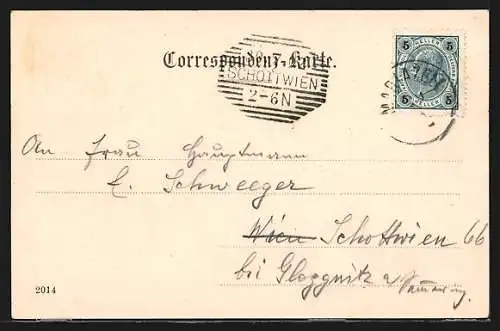 Correspondenz-Karte.
SCHOTTWIEN
2-6N
5 5
HELLER
5 5
An Frau Hauptmann
E. Schweeger
Wien Schottwien 66
bei Gloggnitz a/Semmering.
2014